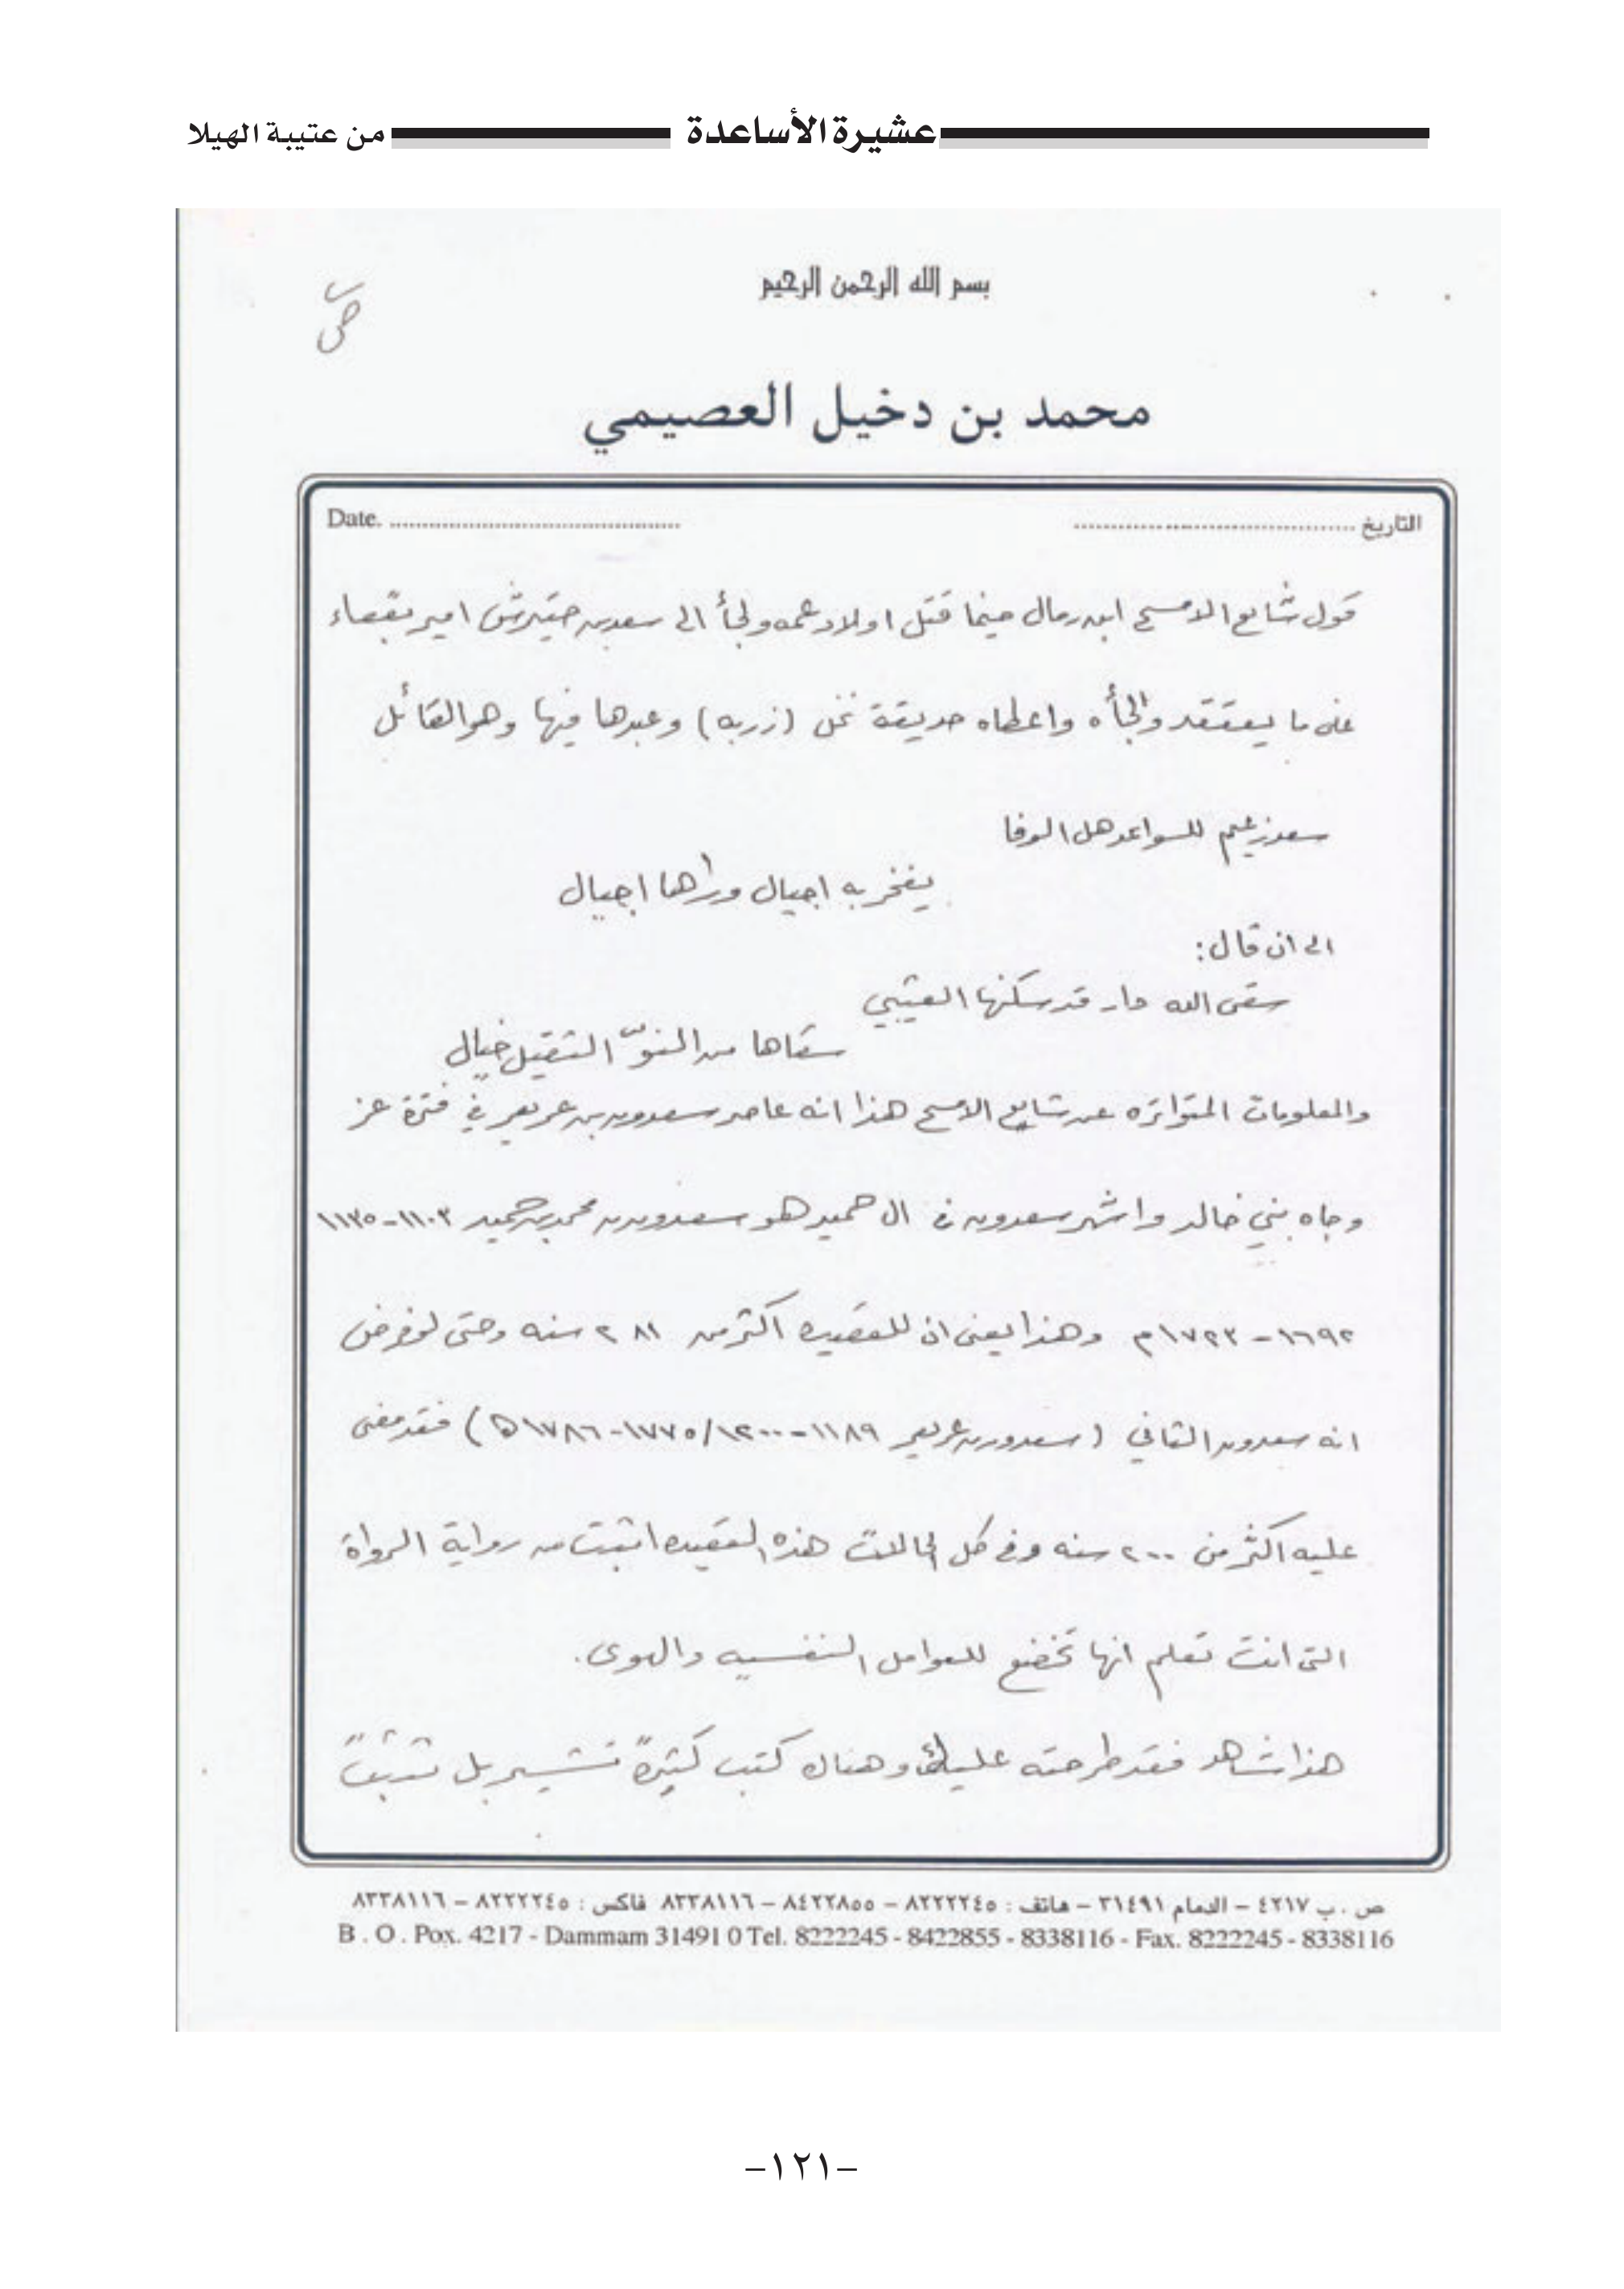 عشيرة الأساعدة من عتيبة الهيلا
بسم الله الرحمن الرحيم
محمد بن دخيل العصيمي
التاريخ .......................... Date. ..........................
قول شايع الامسح ابن رمال حينما قتل اولاد عمه ولجأ الى سعد بن حتيرش امير بقعاء
على ما يعتقد والجأه واعطاه حديقة نخل (زربه) وعبدها فيها وهو القائل
سعد زعيم للسواعد هل الوفا
يفخر به اجيال وراها اجيال
الى ان قال:
سقى الله دار قد سكنها العتيبي
سقاها من النوّ الثقيل خيال
والمعلومات المتواتره عن شايع الامسح هذا انه عاصر سعدون بن عريعر في فترة عز
وجاه بني خالد واشهر سعدون في ال حميد هو سعدون بن محمد بن حميد ١١٠٣-١١٣٥
١٦٩٢-١٧٢٣م وهذا يعني ان للقصيده اكثر من ٢٨١ سنه وحتى لو فرض
انه سعدون الثاني (سعدون بن عريعر ١١٨٩-١٢٠٠/١٧٧٥-١٧٨٦ه) فقد مضى
عليه اكثر من ٢٠٠ سنه وفي كل الحالات هذه القصيده اثبت من رواية الرواة
التي انت تعلم انها تخضع للعوامل النفسيه والهوى.
هذا شاهد فقد طرحته عليك وهناك كتب كثيرةً تشير بل تثبت
ص . ب ٤٢١٧ – الدمام ٣١٤٩١ – هاتف : ٨٢٢٢٢٤٥ – ٨٤٢٢٨٥٥ – ٨٣٣٨١١٦ فاكس : ٨٢٢٢٢٤٥ – ٨٣٣٨١١٦
B . O . Pox. 4217 - Dammam 31491 0 Tel. 8222245 - 8422855 - 8338116 - Fax. 8222245 - 8338116
–١٢١–